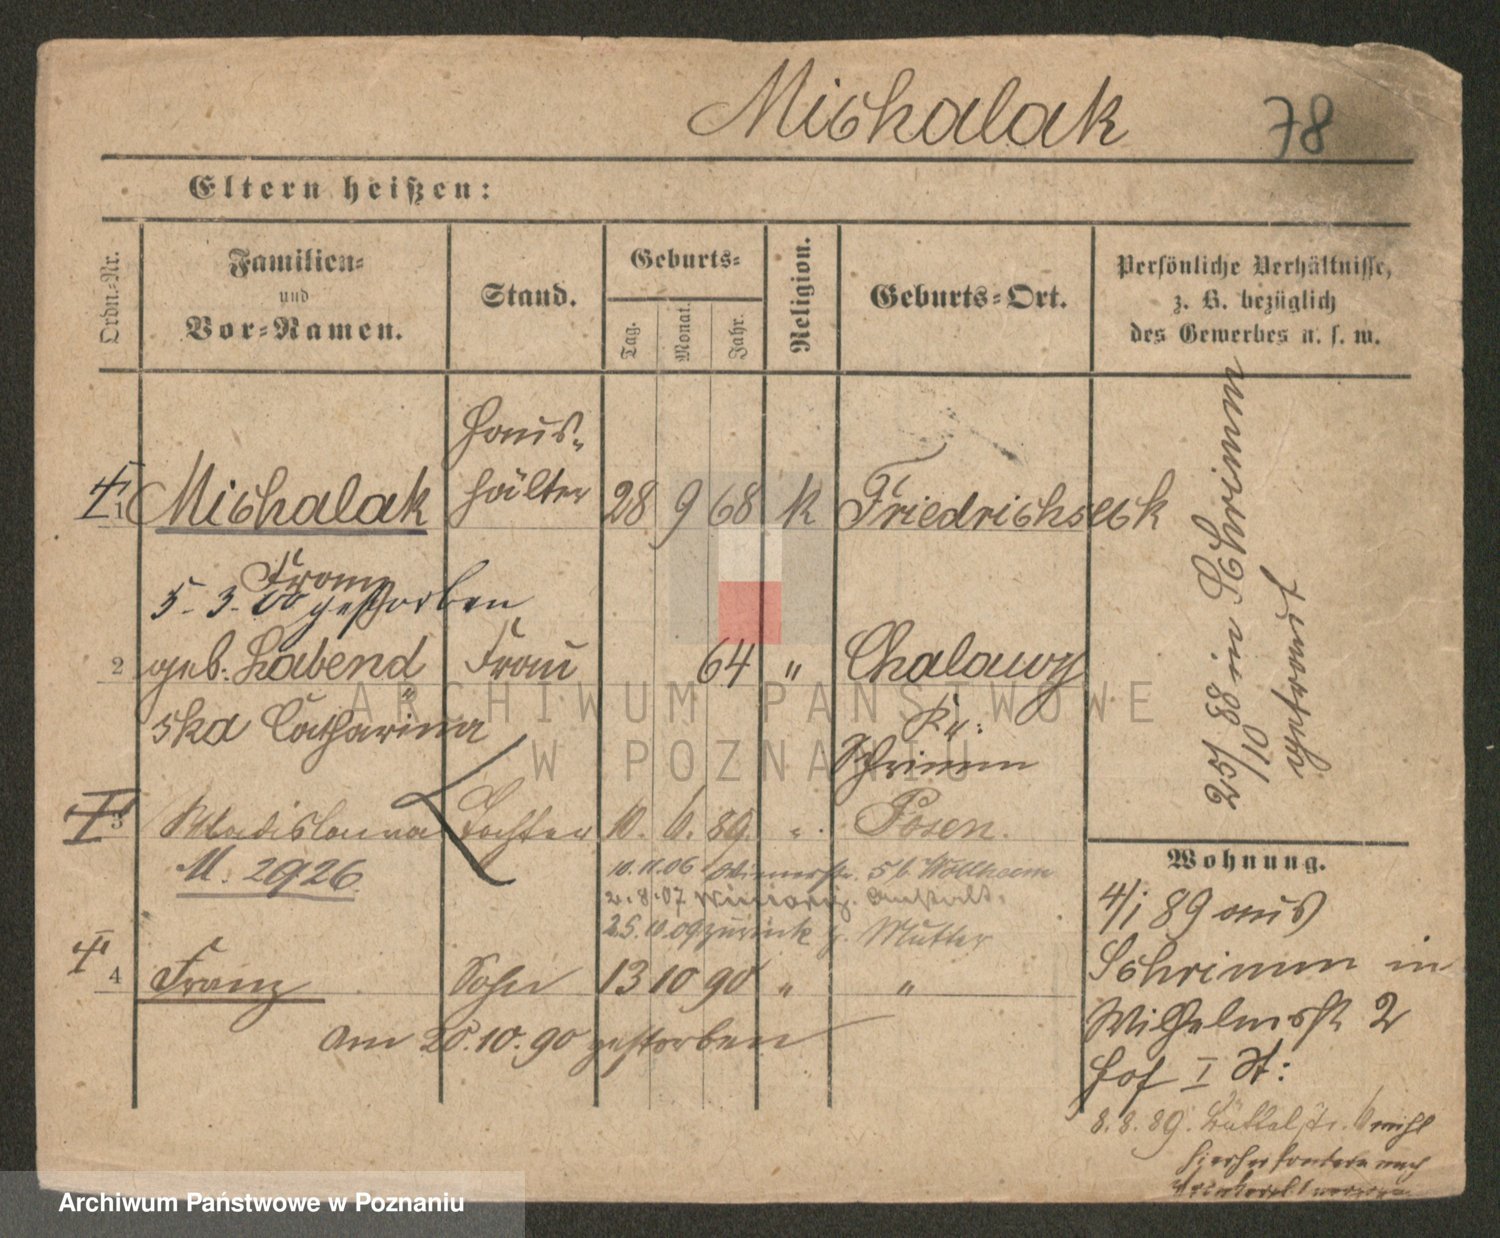 Michalak 78
Eltern heißen:
Ordn.-Nr.
Familien-
und
Vor-Namen.
Stand.
Geburts-
Tag.
Monat.
Jahr.
Religion.
Geburts-Ort.
Persönliche Verhältnisse,
z. B. bezüglich
des Gewerbes u. s. w.
Haus-
1 Michalak hälter 28 9 68 K Friedrichseck
Franz
5. 3. 00 gestorben
2 geb. Labend Frau 64 " Chalawy
ska Catharina Kr:
Schrimm
25/10 88 in Schrimm
getraut
3 Wladislawa Tochter 10. 6. 89. " Posen.
U. 2926.
10.11.06 5 b. Wollheim
2.8.07 Anstalt.
25.10.09 zurück z. Mutter
4 Franz Sohn 13 10 90 " "
am 20.10.90 gestorben
Wohnung.
4/1 89 aus
Schrimm in
Wilhelmstr 2
Hof I St:
8. 8. 89. 6 nicht
hierher sondern nach
ARCHIWUM PAŃSTWOWE
W POZNANIU
Archiwum Państwowe w Poznaniu